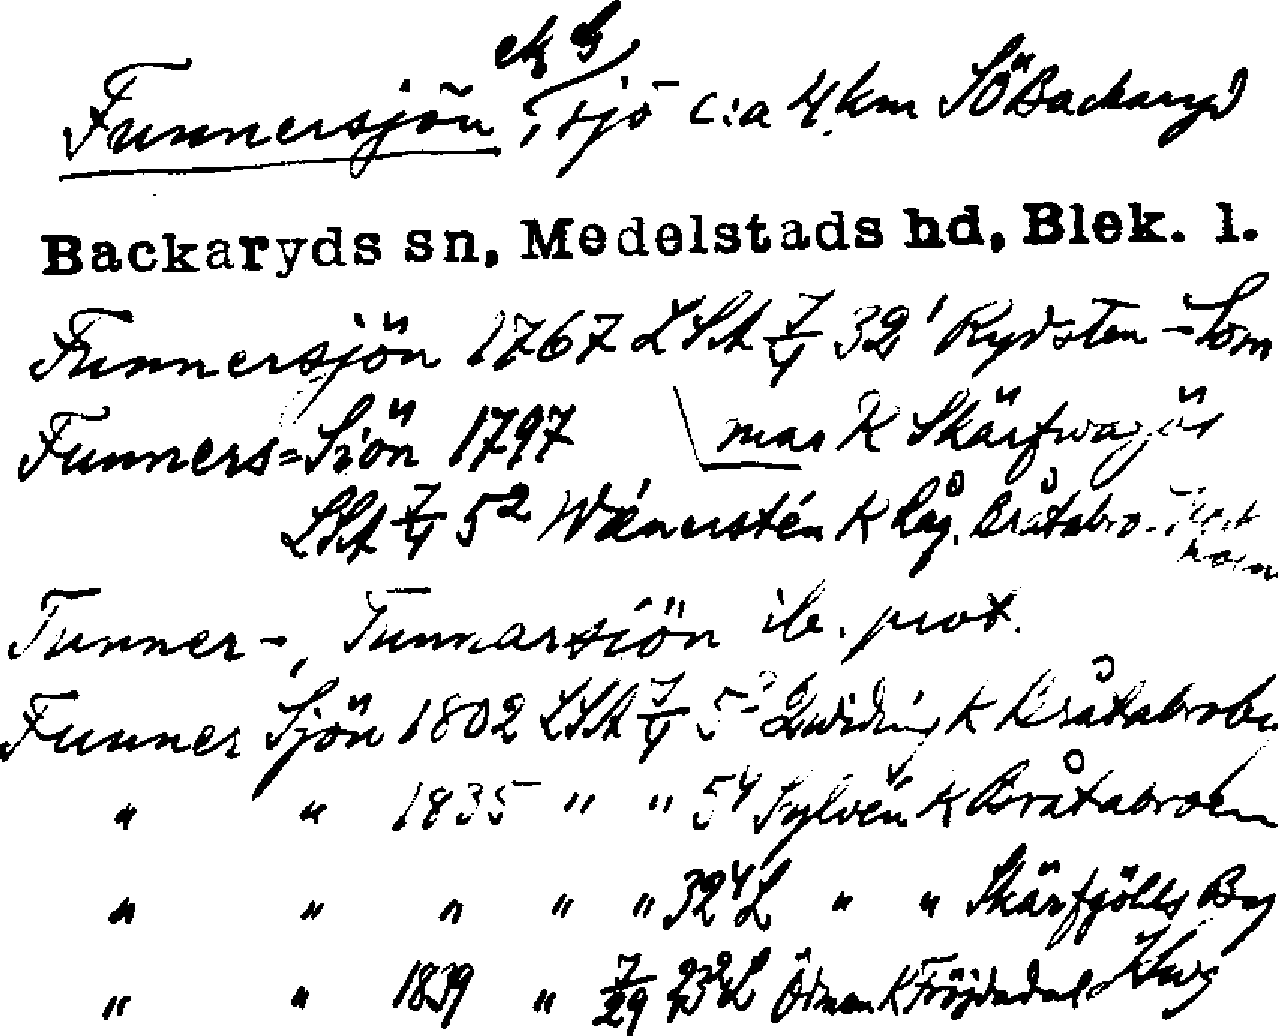 ek G
Funnersjön, sjö c:a 4 km SÖ Backaryd
Backaryds sn, Medelstads hd, Blek. l.
Funnersjön 1767 LSA 7/4 32¹ Rydsten - Som
Funners=Siön 1797 mar K Skärfwagiös
LSA 7/4 5² Wänerstén K Råg, Bråtabro-
Tunner-, Tunnarsiön ib. prot.
Funner Sjön 1802 LSA 7/4 5³ Qwiding K Bråtabroby
" " 1835 " " 5⁴ Sylvén K Bråtabroen
" " " " " 32⁴ L " " Skärfgölls By
" " 1839 " 7/29 L Ödman K Fröjdadal